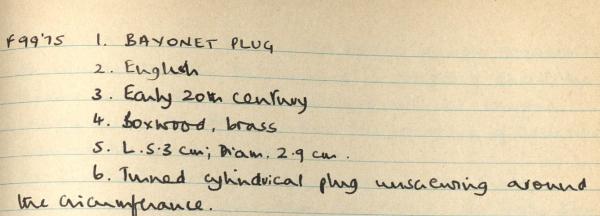 F99'75 1. BAYONET PLUG
2. English
3. Early 20th century
4. Boxwood, brass
5. L.5.3 cm; Diam. 2.9 cm.
6. Turned cylindrical plug unscrewing around
the circumferance.